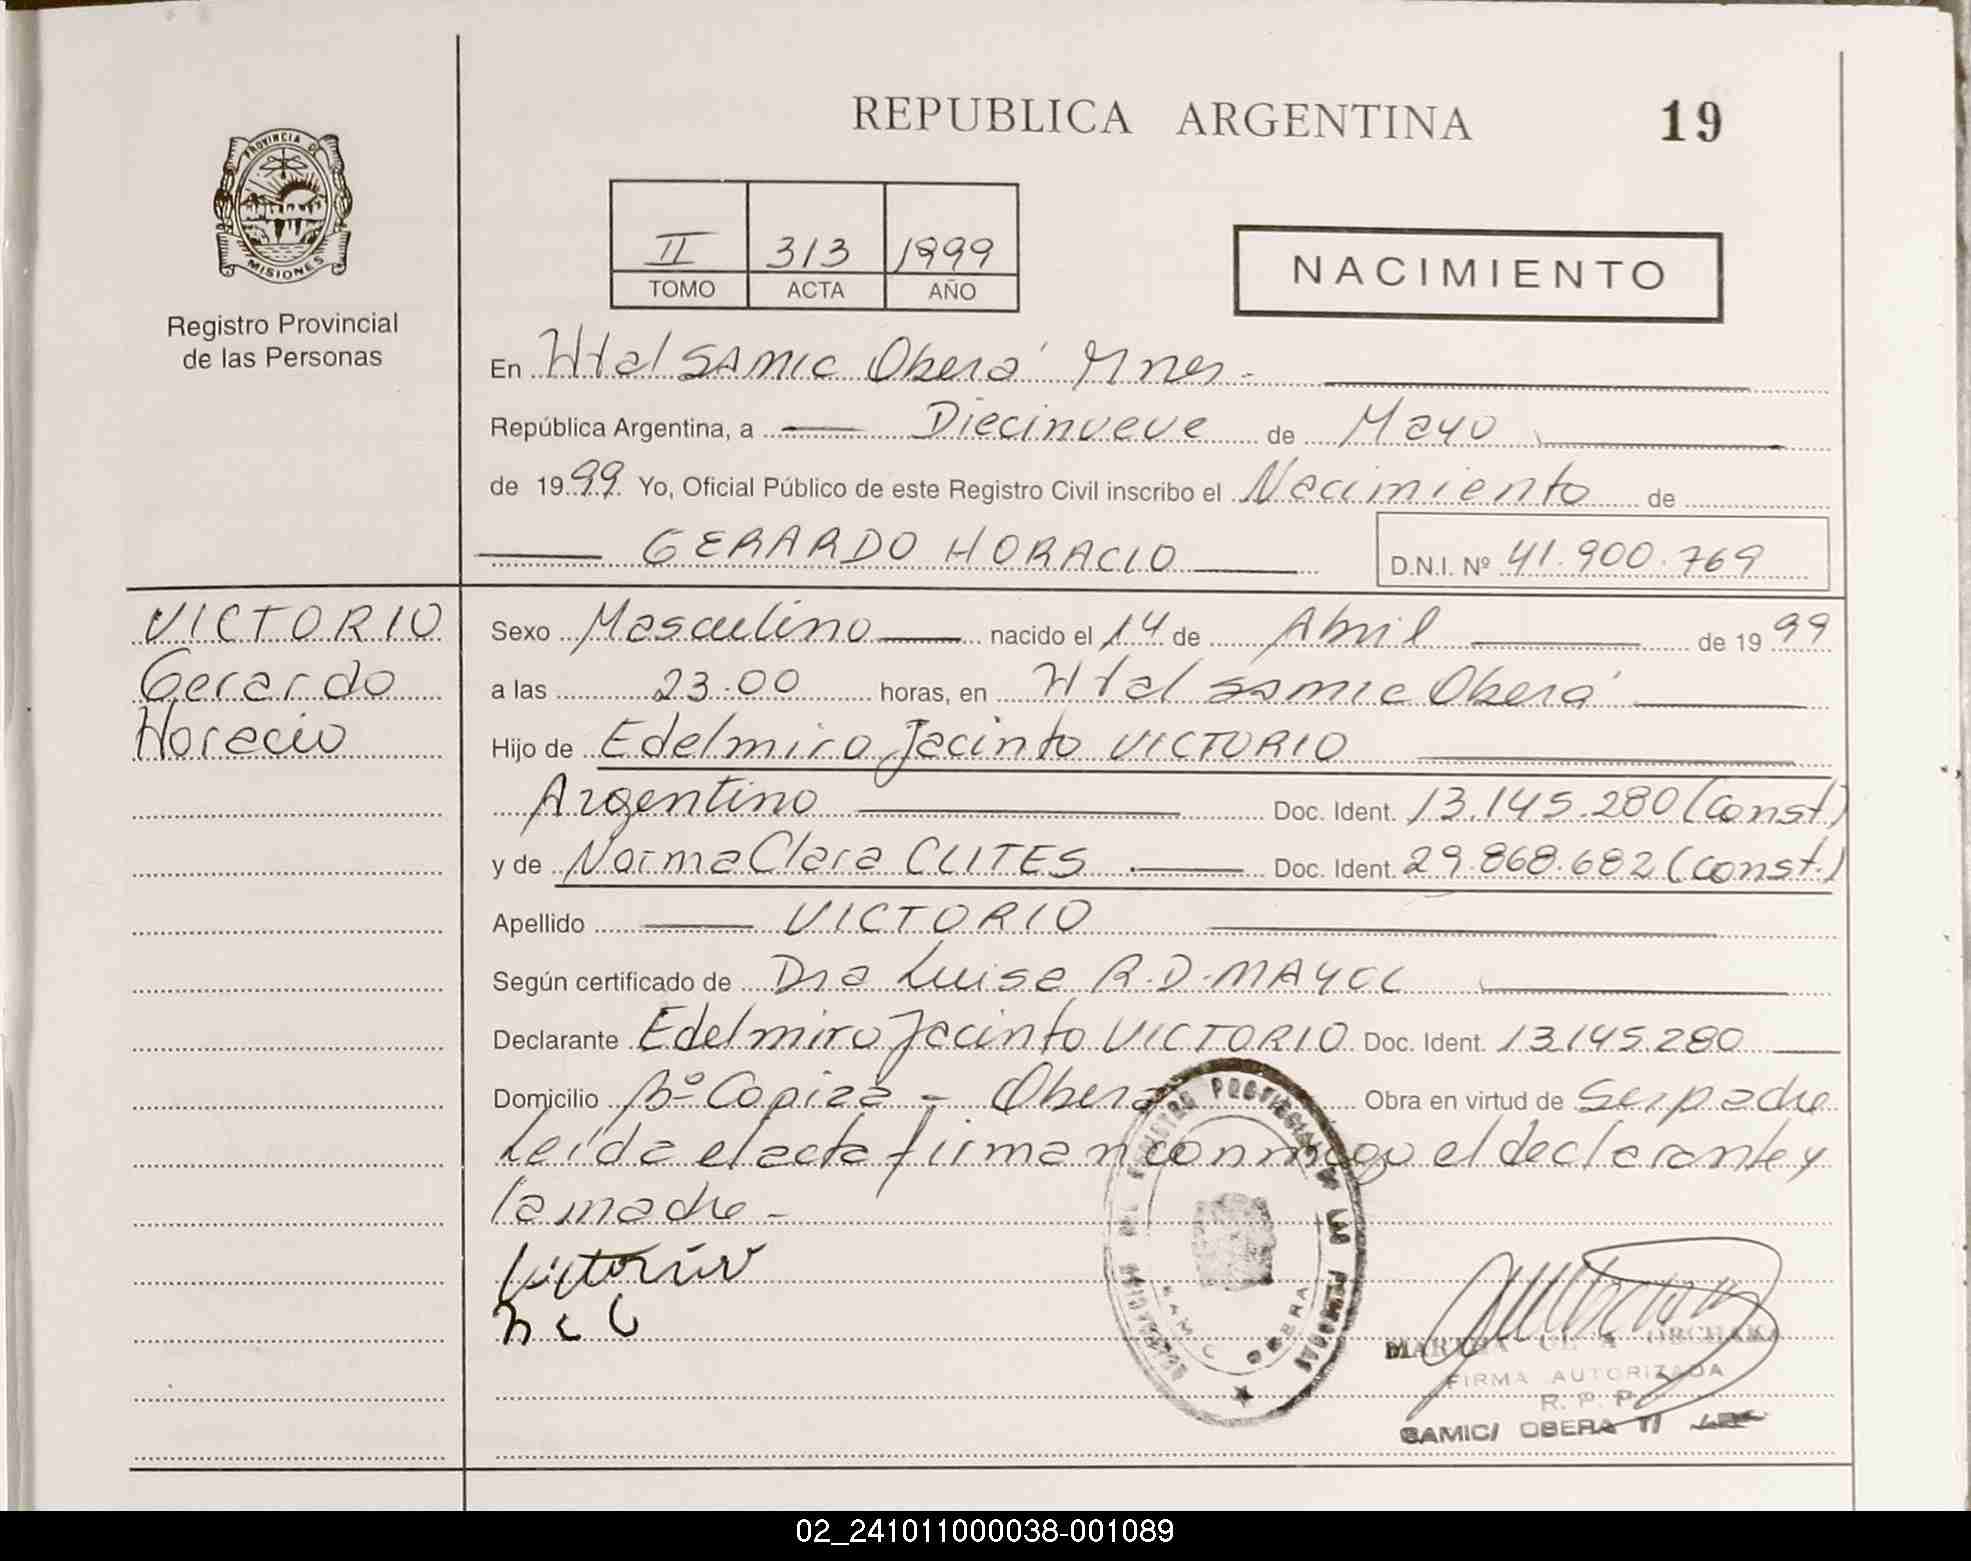 REPUBLICA ARGENTINA
19
PROVINCIA DE
MISIONES
Registro Provincial
de las Personas
II 313 1999
TOMO ACTA AÑO
NACIMIENTO
En Htal SAMIC Oberá Mnes.-
República Argentina, a Diecinueve de Mayo
de 1999 Yo, Oficial Público de este Registro Civil inscribo el Nacimiento de
GERARDO HORACIO
D.N.I. Nº 41.900.769
VICTORIO
Gerardo
Horacio
Sexo Masculino nacido el 14 de Abril de 1999
a las 23:00 horas, en Htal SAMIC Oberá
Hijo de Edelmiro Jacinto VICTORIO
Argentino Doc. Ident. 13.145.280 (Const)
y de Norma Clara CLITES Doc. Ident. 29.868.682 (const.)
Apellido VICTORIO
Según certificado de Dra Luisa R.D.
Declarante Edelmiro Jacinto VICTORIO Doc. Ident. 13.145.280
Domicilio Bº Copiza - Oberá Obra en virtud de Ser padre
Leída el acta firman conmigo el declarante y
la madre -
Victorio
N C C
REGISTRO PROVINCIAL DE LAS PERSONAS
SAMIC OBERA
MARTHA
FIRMA AUTORIZADA
R. P. P.
SAMIC/ OBERA
02_241011000038-001089